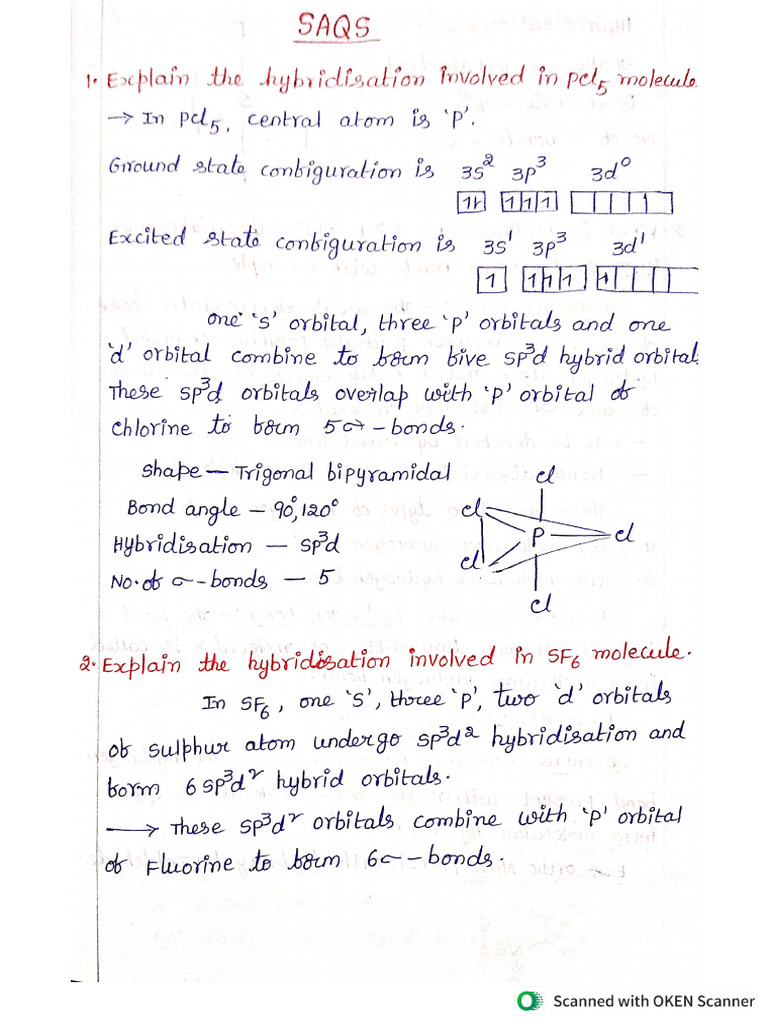 SAQS
1. Explain the hybridisation involved in pcl5 molecule
→ In pcl5, central atom is 'p'.
Ground state configuration is 3s² 3p³ 3d⁰
1⥮ 1 1 1
Excited state configuration is 3s¹ 3p³ 3d¹
1 1 1 1 1
one 's' orbital, three 'p' orbitals and one
'd' orbital combine to form five sp³d hybrid orbital
These sp³d orbitals overlap with 'p' orbital of
chlorine to form 5σ-bonds.
Shape — Trigonal bipyramidal
Bond angle — 90°, 120°
Hybridisation — sp³d
No. of σ-bonds — 5
cl
cl
P
cl
cl
cl
2. Explain the hybridisation involved in SF6 molecule.
In SF6, one 's', three 'p', two 'd' orbitals
of sulphur atom undergo sp³d² hybridisation and
form 6 sp³d² hybrid orbitals.
→ These sp³d² orbitals combine with 'p' orbital
of Fluorine to form 6σ-bonds.
Scanned with OKEN Scanner